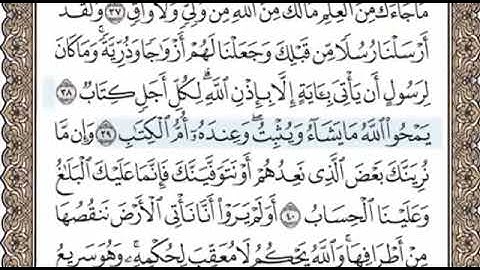 مَا جَاءَكَ مِنَ الْعِلْمِ مَا لَكَ مِنَ اللَّهِ مِن وَلِيٍّ وَلَا وَاقٍ ٣٧ وَلَقَدْ
أَرْسَلْنَا رُسُلًا مِّن قَبْلِكَ وَجَعَلْنَا لَهُمْ أَزْوَاجًا وَذُرِّيَّةً ۚ وَمَا كَانَ
لِرَسُولٍ أَن يَأْتِيَ بِـَٔايَةٍ إِلَّا بِإِذْنِ اللَّهِ ۗ لِكُلِّ أَجَلٍ كِتَابٌ ٣٨
يَمْحُوا اللَّهُ مَا يَشَاءُ وَيُثْبِتُ ۖ وَعِندَهُۥ أُمُّ الْكِتَٰبِ ٣٩ وَإِن مَّا
نُرِيَنَّكَ بَعْضَ الَّذِي نَعِدُهُمْ أَوْ نَتَوَفَّيَنَّكَ فَإِنَّمَا عَلَيْكَ الْبَلَٰغُ
وَعَلَيْنَا الْحِسَابُ ٤٠ أَوَلَمْ يَرَوْا أَنَّا نَأْتِي الْأَرْضَ نَنقُصُهَا
مِنْ أَطْرَافِهَا ۚ وَاللَّهُ يَحْكُمُ لَا مُعَقِّبَ لِحُكْمِهِۦ ۚ وَهُوَ سَرِيعُ